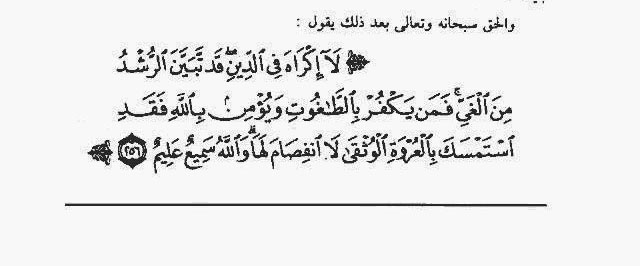 والحق سبحانه وتعالى بعد ذلك يقول :
﴿ لَآ إِكْرَاهَ فِى ٱلدِّينِۖ قَد تَّبَيَّنَ ٱلرُّشْدُ
مِنَ ٱلْغَىِّۚ فَمَن يَكْفُرْ بِٱلطَّـٰغُوتِ وَيُؤْمِنۢ بِٱللَّهِ فَقَدِ
ٱسْتَمْسَكَ بِٱلْعُرْوَةِ ٱلْوُثْقَىٰ لَا ٱنفِصَامَ لَهَاۗ وَٱللَّهُ سَمِيعٌ عَلِيمٌ ٢٥٦ ﴾